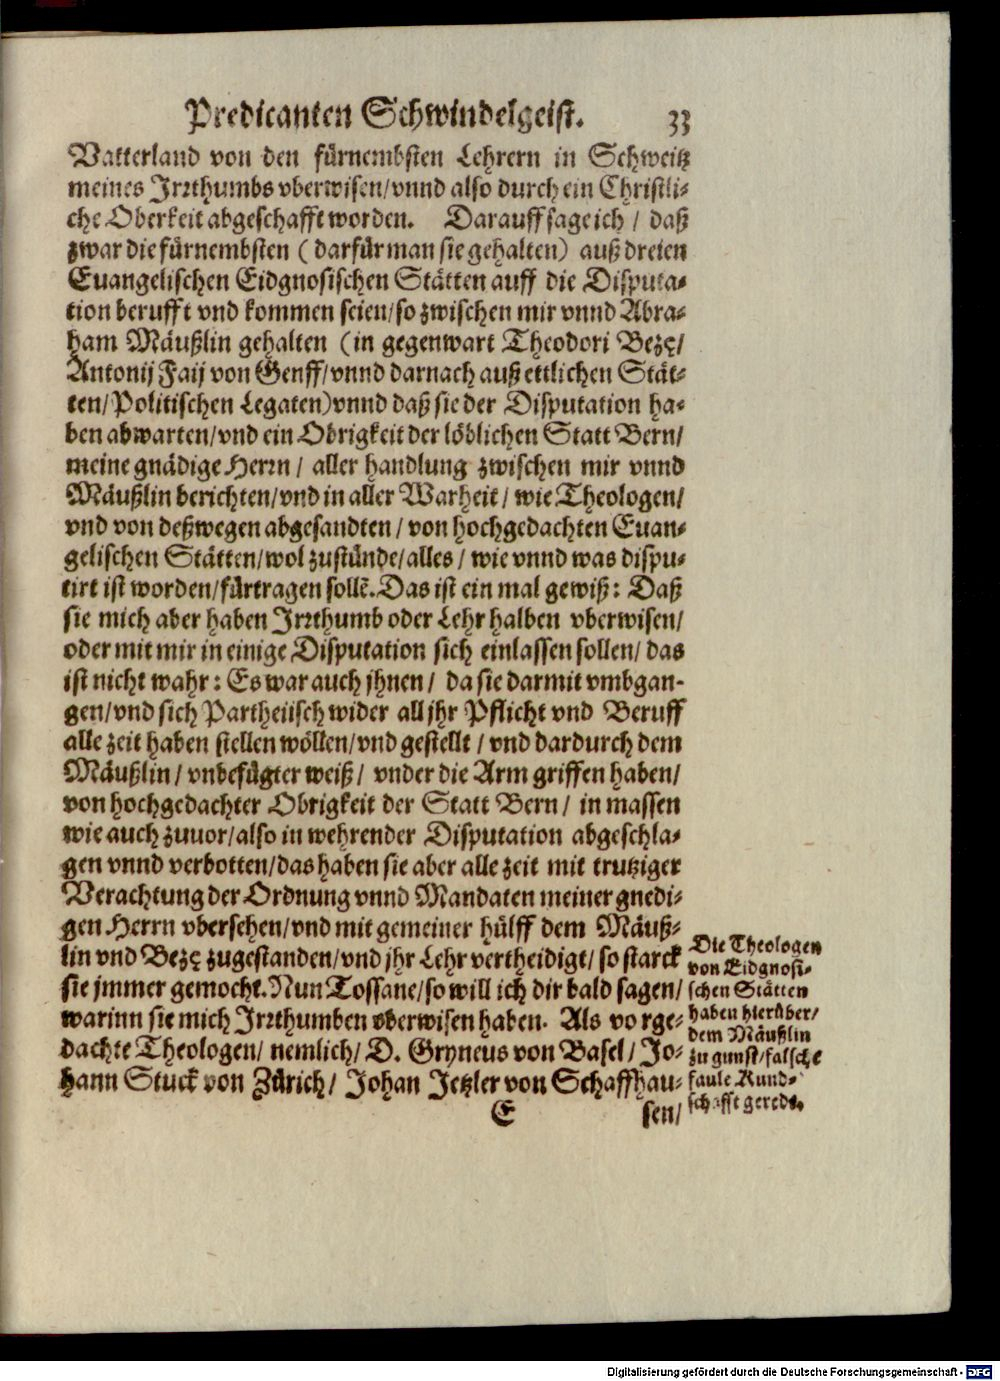 Predicanten Schwindelgeist. 33
Vatterland von den fürnembsten Lehrern in Schweitz
meines Irrthumbs vberwisen/vnnd also durch ein Christli-
che Oberkeit abgeschafft worden. Darauff sage ich / daß
zwar die fürnembsten (darfür man sie gehalten) auß dreien
Euangelischen Eidgnosischen Stätten auff die Disputa-
tion berufft vnd kommen seien/so zwischen mir vnnd Abra-
ham Mäußlin gehalten (in gegenwart Theodori Bezę/
Antonij Faij von Genff/vnnd darnach auß ettlichen Stät-
ten/Politischen Legaten)vnnd daß sie der Disputation ha-
ben abwarten/vnd ein Obrigkeit der löblichen Statt Bern/
meine gnädige Herrn / aller handlung zwischen mir vnnd
Mäußlin berichten/vnd in aller Warheit / wie Theologen/
vnd von deßwegen abgesandten / von hochgedachten Euan-
gelischen Stätten/wol zustünde/alles / wie vnnd was dispu-
tirt ist worden/fürtragen sollē. Das ist ein mal gewiß: Daß
sie mich aber haben Irrthumb oder Lehr halben vberwisen/
oder mit mir in einige Disputation sich einlassen sollen/ das
ist nicht wahr: Es war auch jhnen / da sie darmit vmbgan-
gen/vnd sich Partheiisch wider all jhr Pflicht vnd Beruff
alle zeit haben stellen wöllen/vnd gestellt / vnd dardurch dem
Mäußlin / vnbefügter weiß/ vnder die Arm griffen haben/
von hochgedachter Obrigkeit der Statt Bern / in massen
wie auch zuuor/also in wehrender Disputation abgeschla-
gen vnnd verbotten/das haben sie aber alle zeit mit trutziger
Verachtung der Ordnung vnnd Mandaten meiner gnedi-
gen Herrn vbersehen/vnd mit gemeiner hülff dem Mäuß-
lin vnd Bezę zugestanden/vnd jhr Lehr vertheidigt/ so starck
sie jmmer gemocht. Nun Tossane/so will ich dir bald sagen/
warinn sie mich Irrthumben vberwisen haben. Als vorge-
dachte Theologen/ nemlich/ D. Gryneus von Basel/ Jo-
hann Stuck von Zürich/ Johan Jetzler von Schaffhau-
E sen/
Die Theologen
von Eidgnosi-
schen Stätten
haben hierüber/
dem Mäußlin
zu gunst/falsche
faule Kund-
schafft geredt.
Digitalisierung gefördert durch die Deutsche Forschungsgemeinschaft - DFG